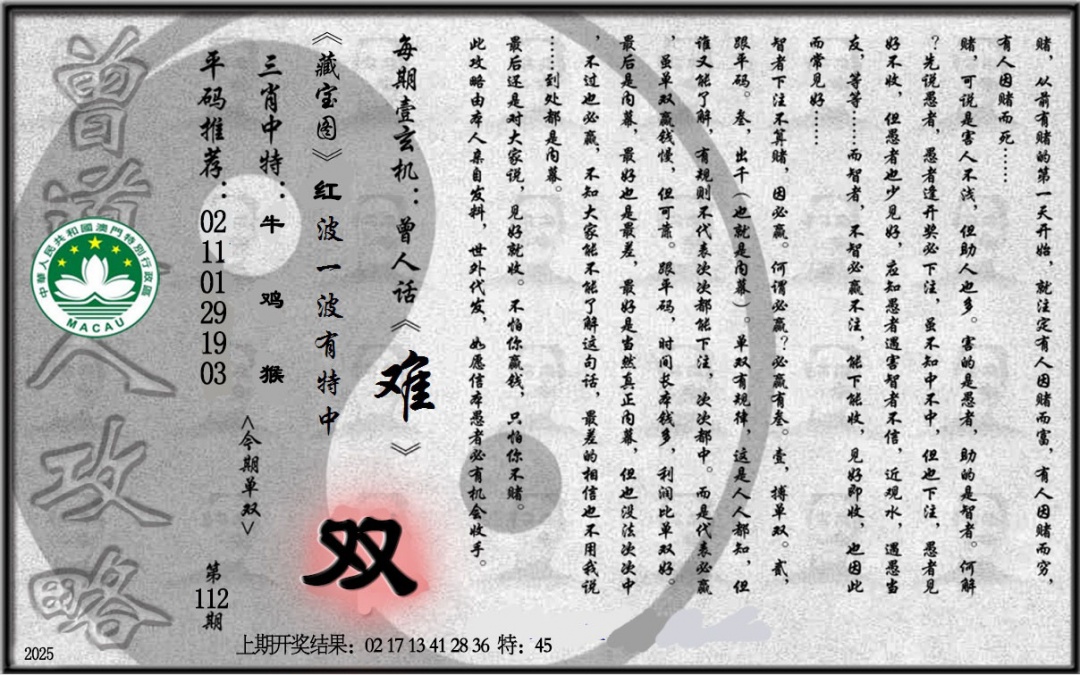 赌，从前有赌的第一天开始，就注定有人因赌而富，有人因赌而穷，
有人因赌而死……
赌，可说是害人不浅，但助人也多。害的是愚者，助的是智者。何解
？先说愚者，愚者逢开奖必下注，虽不知中不中，但也下注，愚者见
好不收，但愚者也少见好，应知愚者遇害智者不信，近观水，遇愚当
友，等等……而智者，不智必赢不注，能下能收，见好即收，也因此
而常见好……
智者下注不算赌，因必赢。何谓必赢？必赢有叁。壹，搏单双。贰，
跟平码。叁，出千（也就是内幕）。单双有规律，这是人人都知，但
谁又能了解，有规则不代表次次都能下注，次次都中。而是代表必赢
，虽单双赢钱慢，但可靠。跟平码，时间长本钱多，利润比单双好。
最后是内幕，最好也是最差，最好是当然真正内幕，但也没法次次中
，不过也必赢，不知大家能不能了解这句话，最差的相信也不用我说
……到处都是内幕。
最后还是对大家说，见好就收。不怕你赢钱，只怕你不赌。
此攻略由本人亲自发料，世外代发，如愿信本愚者必有机会收手。
每期壹玄机：曾人话《难》
《藏宝图》红波一波有特中
双
三肖中特：牛 鸡 猴
<今期单双>
平码推荐：02 11 01 29 19 03
第112期
曾道人攻略
中華人民共和國澳門特別行政區
MACAU
上期开奖结果：02 17 13 41 28 36 特：45
2025